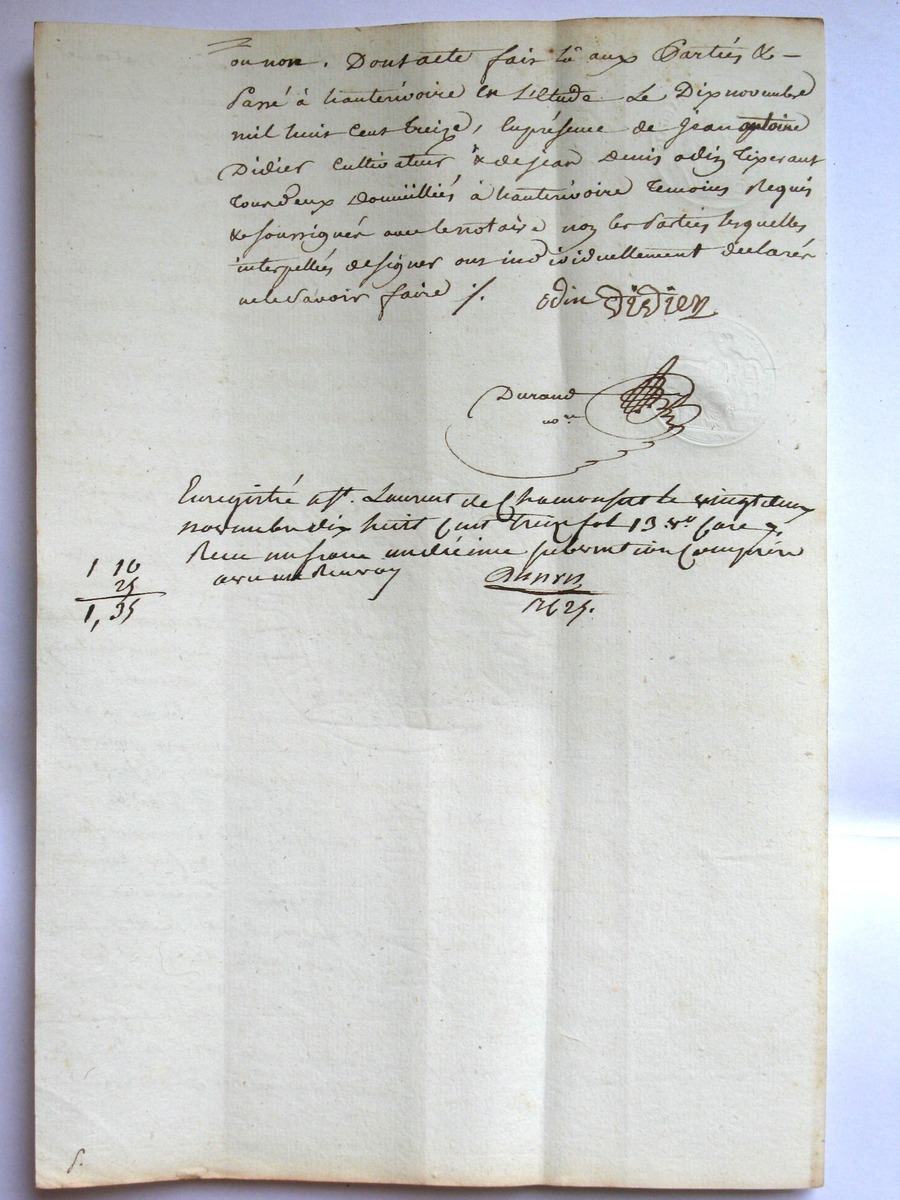 ou non. Dont acte fait lû aux Parties & –
Passé à hauterivoire en L'étude Le Dix novembre
mil huit Cent treize, En présence de Jean antoine
Didier Cultivateur & de jean Denis odin Tixerant
tous deux Domiciliés à hauterivoire Temoins Requis
& soussignés avec le notaire non les Parties lesquelles
interpellés de signer ont individuellement déclarés
ne le savoir faire /.
odin Didier
Durand
no.re
Enregistré à St. Laurent de Chamousset le vingt deux
novembre dix huit Cent treize fol 13 Vo Case 7.
Reçu un franc un décime subvention Comprise
avec un Renvoy
1 10
25
1, 35